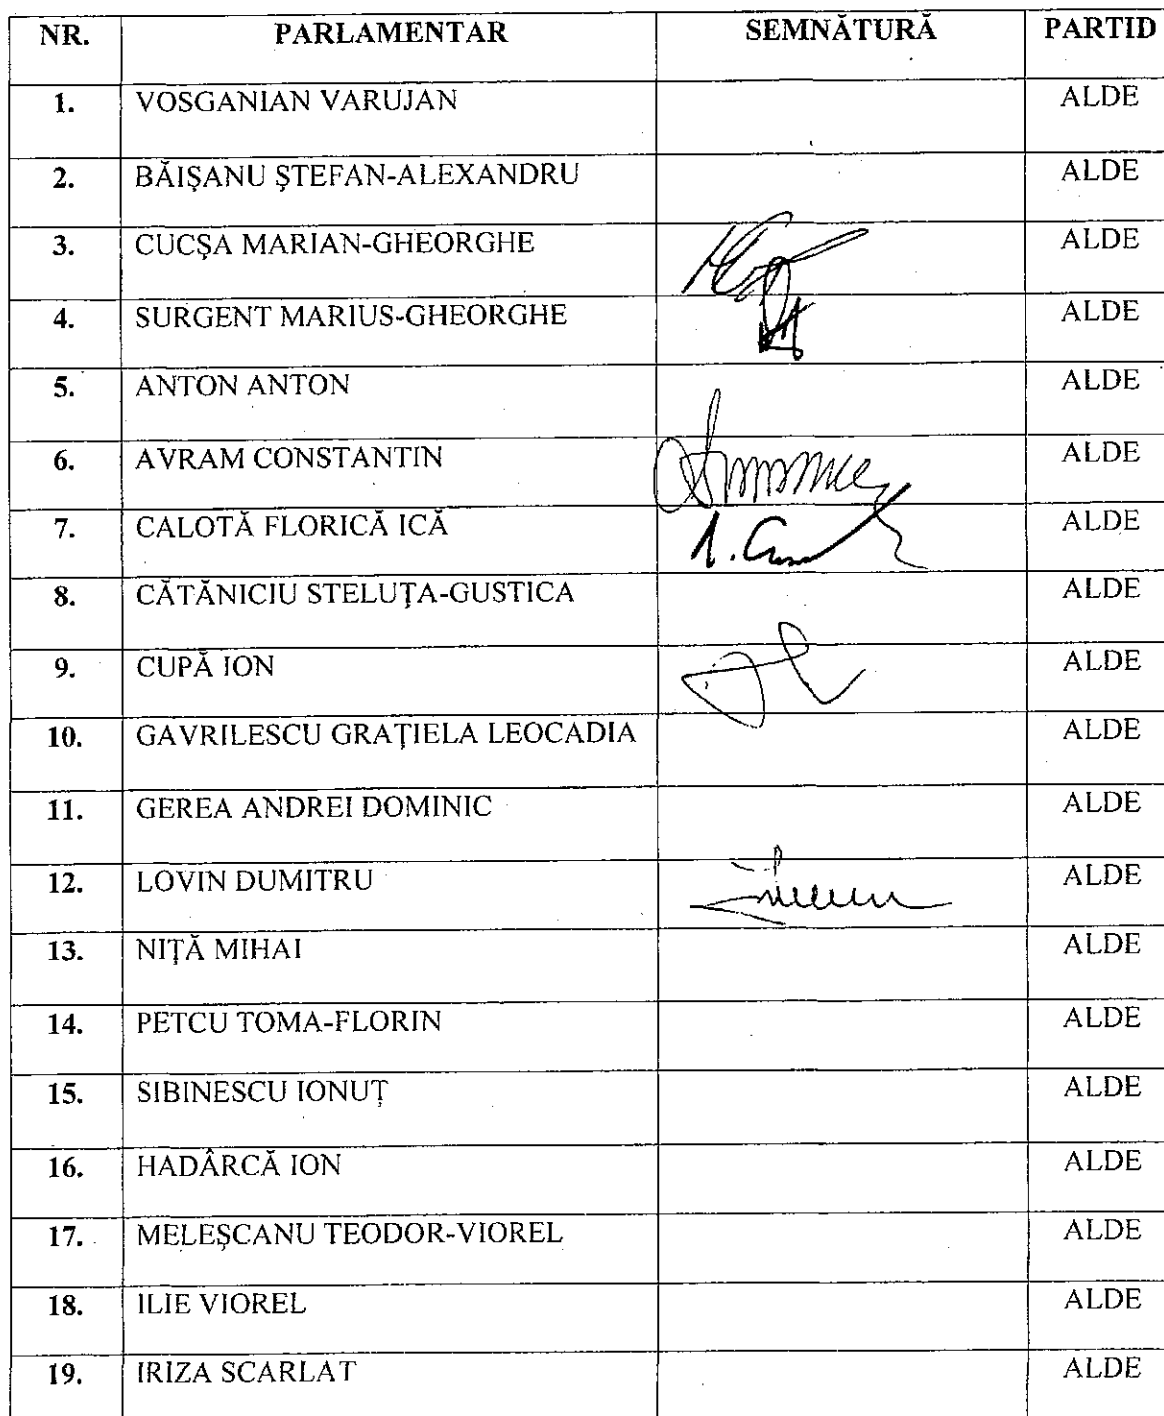 NR. PARLAMENTAR SEMNĂTURĂ PARTID
1. VOSGANIAN VARUJAN ALDE
2. BĂIŞANU ŞTEFAN-ALEXANDRU ALDE
3. CUCŞA MARIAN-GHEORGHE ALDE
4. SURGENT MARIUS-GHEORGHE ALDE
5. ANTON ANTON ALDE
6. AVRAM CONSTANTIN ALDE
7. CALOTĂ FLORICĂ ICĂ ALDE
8. CĂTĂNICIU STELUŢA-GUSTICA ALDE
9. CUPĂ ION ALDE
10. GAVRILESCU GRAŢIELA LEOCADIA ALDE
11. GEREA ANDREI DOMINIC ALDE
12. LOVIN DUMITRU ALDE
13. NIŢĂ MIHAI ALDE
14. PETCU TOMA-FLORIN ALDE
15. SIBINESCU IONUŢ ALDE
16. HADÂRCĂ ION ALDE
17. MELEŞCANU TEODOR-VIOREL ALDE
18. ILIE VIOREL ALDE
19. IRIZA SCARLAT ALDE